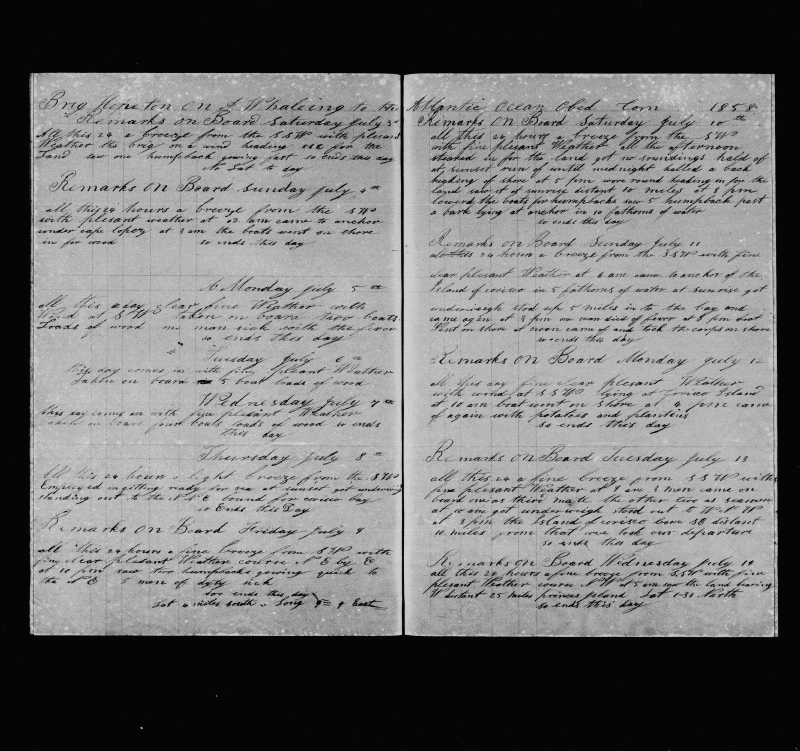 Brig on A Whaleing to the
Remarks on Board Saturday July 3
All this 24 a breeze from the S S W with plesant
Weather the brig on a wind heading ese for the
Land saw one humpback going fast so ends this day
No Lat to day
Remarks On Board Sunday July 4th
all this 24 hours a breeze from the S W
with plesant weather at 12 am came to anchor
under cape lopez at 2 am the boats went on shore
in for wood so ends this day
Monday July 5th
all this day clear fine Weather with
Wind at S W taken on board two boats
Loads of wood one man sick with the fever
so ends this day
Tuesday July 6th
This day comes in with fine plesant Weather
Taken on board 5 boat loads of wood
Wednesday July 7th
this day comes in with fine plesant Weather
on board four boats loads of wood so ends
this day
Thursday July 8th
All this 24 hours a light breeze from the S W
Employed in getting ready for sea at sunset got underweigh
standing out to the N N E bound for corisco bay
so Ends this Day
Remarks On Board Friday July 9
all this 24 hours a fine breeze from S W with
fine clear plesant Weather course N E by E
at 10 pm saw two humpbacks going quick to
the N E 5 men of duty sick
soo ends this day
Lat 4 miles south Long 9 = 9 East
Atlantic Ocean Obed Corn 1858
Remarks On Board Saturday July 10th
all this 24 hours a breeze from the S W
with fine plesant Weather all the afternoon
steared in for the land got no soundings hald of
at sunset run of until midnight halled a back
heading of shore at 5 pm wore round heading in for the
land saw it at sunrise distant 10 miles at 8 pm
lowerd the boats for humpbacks saw 5 humpback past
a bark lying at anchor in 10 fathoms of water
so ends this day
Remarks on Board Sunday July 11
all this 24 hours a breeze from the S S W with fine
clear plesant Weather at 6 am came to anchor of the
Island of corisco in 5 fathoms of water at sunrise got
underweigh stod up 5 miles in to the bay and
came agin at 3 pm on man died of fever at 8 pm
Went on shore at noon came of and took the corps on shore
so ends this day
Remarks On Board Monday July 12
all this day fine clear plesant Weather
with wind at S S W lying at Corisco Island
at 10 am boat went on shore at 4 pm came
of again with potatoes and plantins
so ends this day
Remarks On Board Tuesday July 13
all this 24 a fine breeze from S S W with
fine plesant Weather at 8 am 3 men came on
board one as third mate the other two as seamen
at 10 am got underweigh stood out to W N W
at 3 pm the Island of corisco bore SE distant
10 miles from that we took our departure
so ends this day
Remarks On Board Wednesday July 14
all this 24 hours a fine breeze from S S W with fine
plesant Weather course N W at 5 am saw the land bearing
W distant 25 miles princes Island Lat 1-31 North
so ends this day